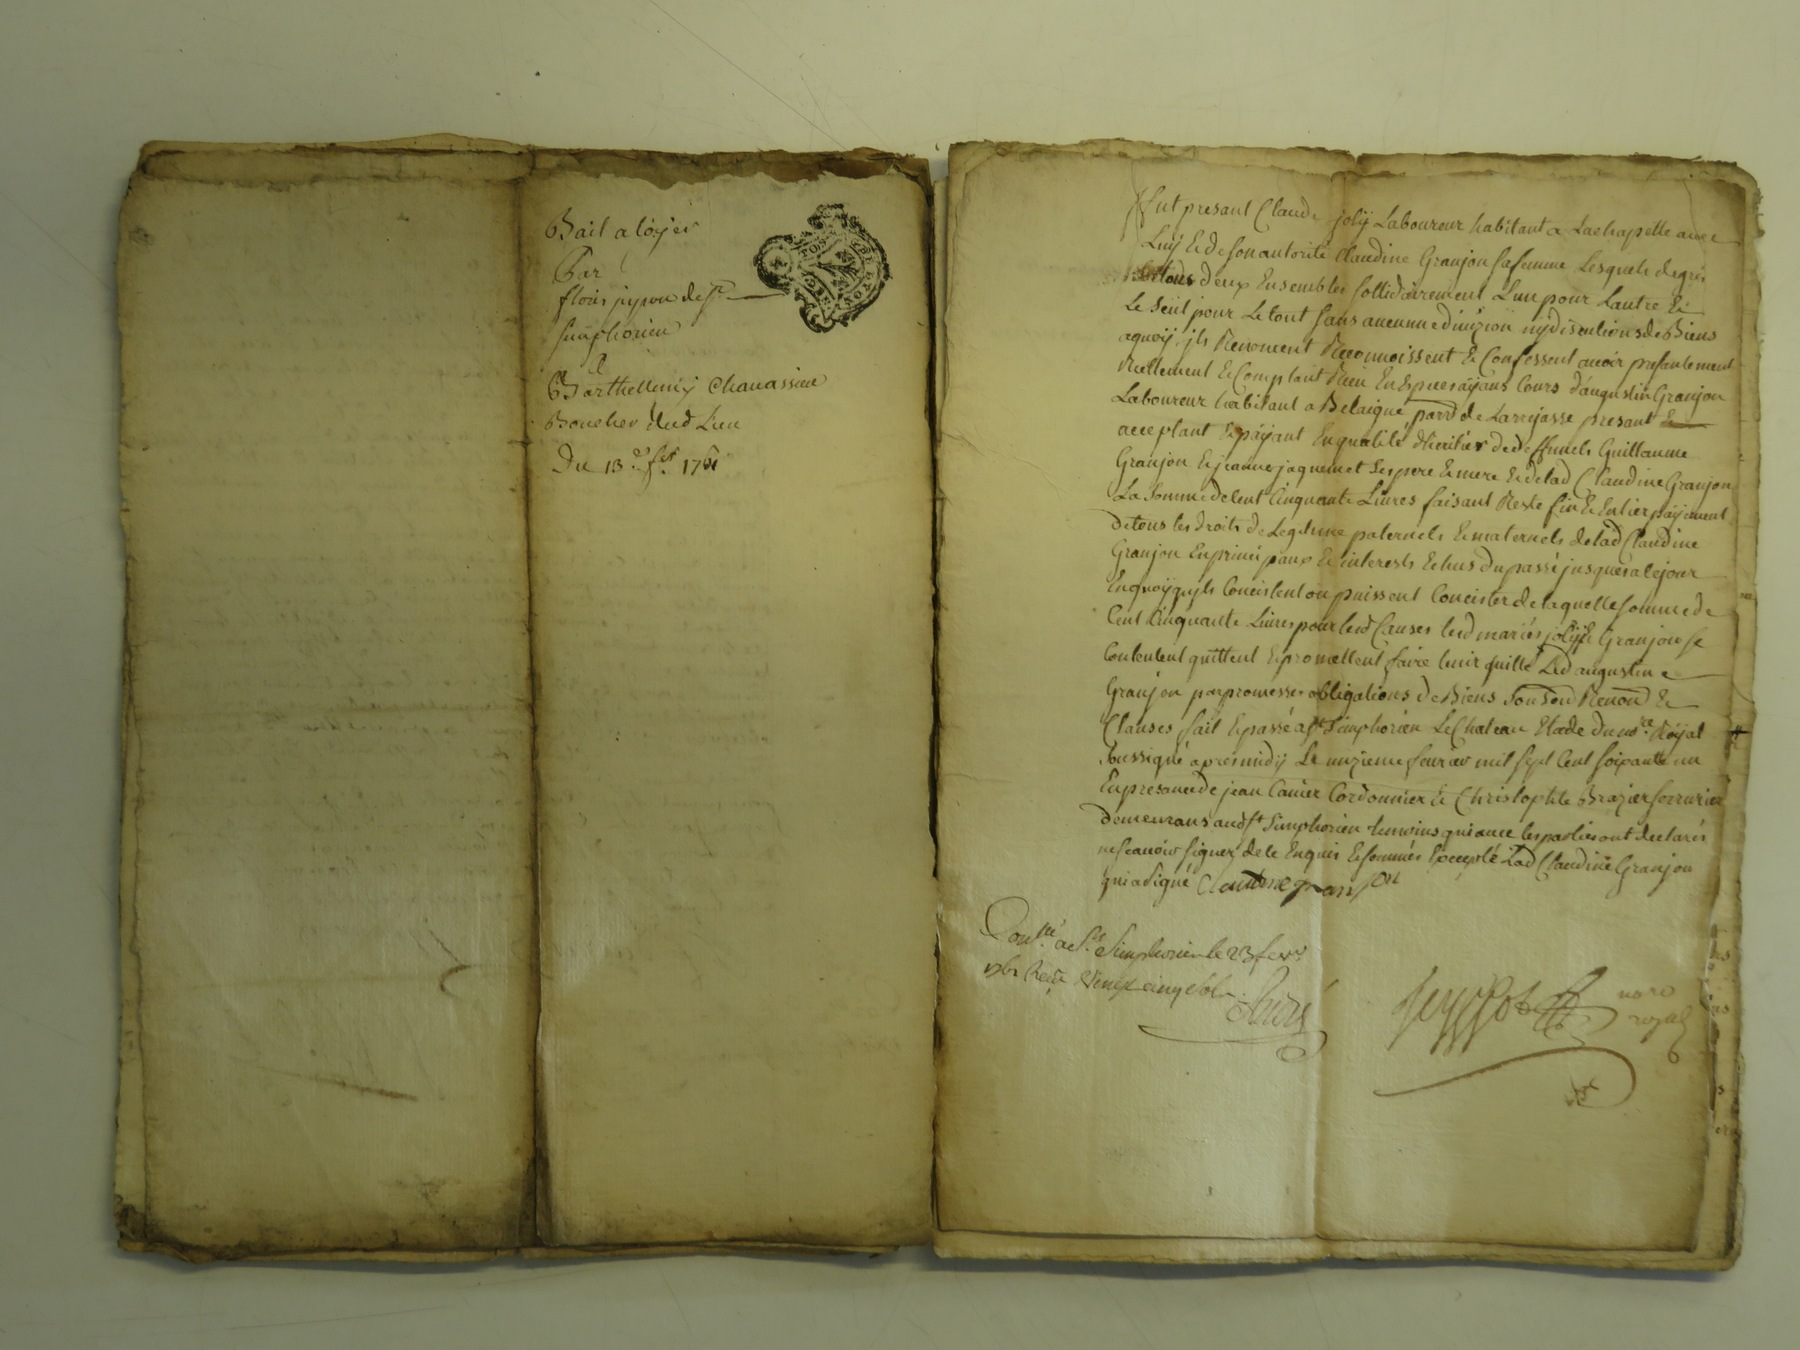 Bail a loyer
Par
fleuri pypon de St
simphorien
A
Barthellemy Chavassieu
Boucher dud Lieu
Du 13e fer 1761
Fut presant Claude joly Laboureur habitant a Lachapelle avec
Luy & de son autorité Claudine Granjon sa femme Lesquels de gres
tous deux Ensembles sollidairement L'un pour Lautre &
Le seul pour Le tout sans aucune divizion ny discutions de Biens
aquoy jls Renoncent Reconnoissent & Confessent avoir presantement
Reellement & Comptant Receu En Especes ayans Cours d'augustin Granjon
Laboureur habitant a Belaigue parr de Larajasse presant &
acceptant & payant En qualité d'heritier de deffunts Guillaume
Granjon & jeanne jaquemet ses pere & mere & de lad Claudine Granjon
La somme de Cent Cinquante Livres faisant Reste fin & Entier payement
de tous les droits de Legitime paternels & maternels de lad Claudine
Granjon En principaux & interests Echus du passé jusques a ce jour
En quoy qu'jls Concistent ou puissent Concister de laquelle somme de
Cent Cinquante Livres pour lesd Causes lesd mariés joly & Granjon se
Contentent quittent & promettent faire tenir quitte Led augustin
Granjon par promesses obligations de Biens Renond &
Clauses fait & passé a St Simphorien Le Chateau Etude du nore Royal
soussigné apres midy Le unzieme fevrier mil sept Cent soixante un
En presance de jean Canier Cordonnier & Christophle Brazier serrurier
demeurans aud St Simphorien temoins qui avec les parties ont declarés
ne scavoir signer de ce Enquis & sommés Excepté Lad Claudine Granjon
qui a signé Claudine granjon
Conlle a St Simphorien le 23 fevr
1761 Receu Vingt cinq sols
nore
royal